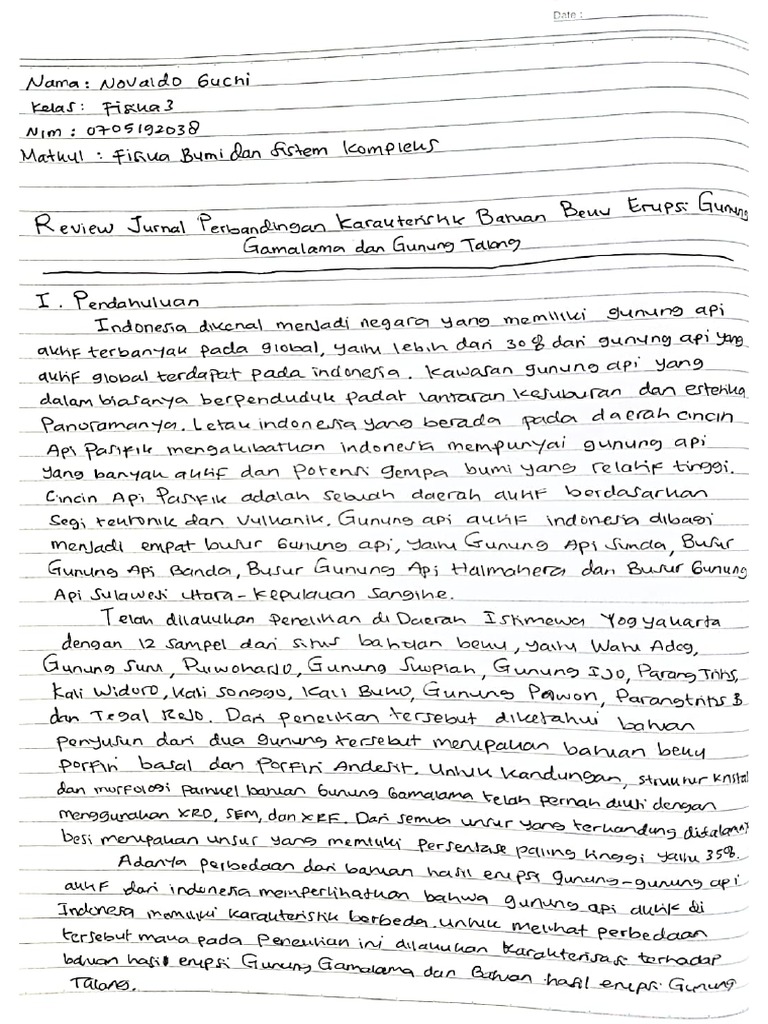 Date :
Nama : Novaldo Guchi
Kelas : Fisika 3
Nim : 0705192038
Matkul : Fisika Bumi dan Sistem Kompleks
Review Jurnal Perbandingan Karakteristik Batuan Beku Erupsi Gunung
Gamalama dan Gunung Talang
I. Pendahuluan
Indonesia dikenal menjadi negara yang memiliki gunung api
aktif terbanyak pada global, yaitu lebih dari 30% dari gunung api yang
aktif global terdapat pada indonesia. Kawasan gunung api yang
dalam biasanya berpenduduk padat lantaran kesuburan dan estetika
Panoramanya. Letak indonesia yang berada pada daerah cincin
Api Pasifik mengakibatkan indonesia mempunyai gunung api
yang banyak aktif dan Potensi gempa bumi yang relatif tinggi.
Cincin Api Pasifik adalah sebuah daerah aktif berdasarkan
Segi tektonik dan Vulkanik. Gunung api aktif indonesia dibagi
menjadi empat busur Gunung api, yaitu Gunung Api Sunda, Busur
Gunung Api Banda, Busur Gunung Api Halmahera dan Busur Gunung
Api Sulawesi Utara - Kepulauan Sangihe.
Telah dilakukan Penelitian di Daerah Istimewa Yogyakarta
dengan 12 sampel dari situs batuan beku, yaitu Watu Adeg,
Gunung Suru, Purwoharjo, Gunung Skopiah, Gunung Ijo, Parang Tritis,
Kali Widoro, Kali Songgo, Kali Buko, Gunung Pawon, Parangtritis B
dan Tegal Rejo. Dari penelitian tersebut diketahui batuan
penyusun dari dua gunung tersebut merupakan batuan beku
porfiri basal dan Porfiri Andesit. Untuk kandungan, struktur kristal
dan morfologi partikel batuan Gunung Gamalama telah pernah diuji dengan
menggunakan XRD, SEM, dan XRF. Dari semua unsur yang terkandung didalamnya
besi merupakan unsur yang memiliki persentase paling tinggi yaitu 35%.
Adanya perbedaan dari batuan hasil erupsi gunung-gunung api
aktif dari indonesia memperlihatkan bahwa gunung api aktif di
Indonesia memiliki karakteristik berbeda. Untuk melihat perbedaan
tersebut maka pada Penelitian ini dilakukan Karakterisasi terhadap
batuan hasil erupsi Gunung Gamalama dan Batuan hasil erupsi Gunung
Talang.